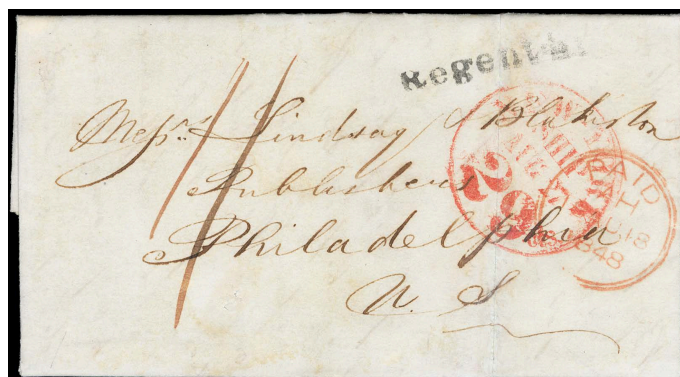 Regent St.
Messrs. Lindsay & Blakiston
Publishers
Philadelphia
U. S
29
PAID
1848